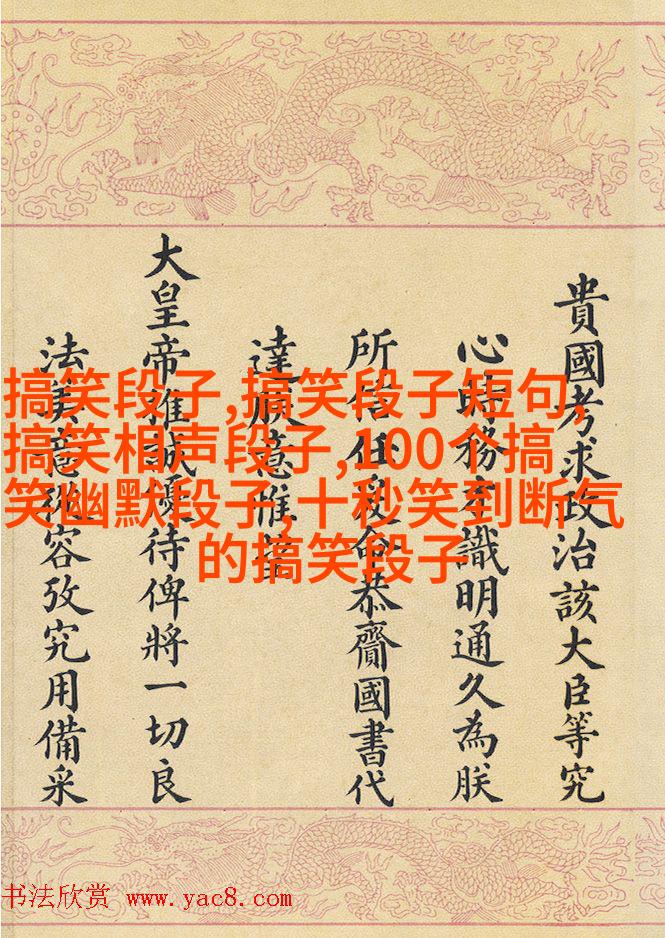 貴國考求政治該大臣等究
心時務識明通久為朕
所信任命恭齎國書代
達朕意惟望
大皇帝推誠優待俾將一切良
法美意從容攷究用備采
搞笑段子,搞笑段子短句,
搞笑相声段子,100个搞
笑幽默段子,十秒笑到断气
的搞笑段子
书法欣赏 www.yac8.com